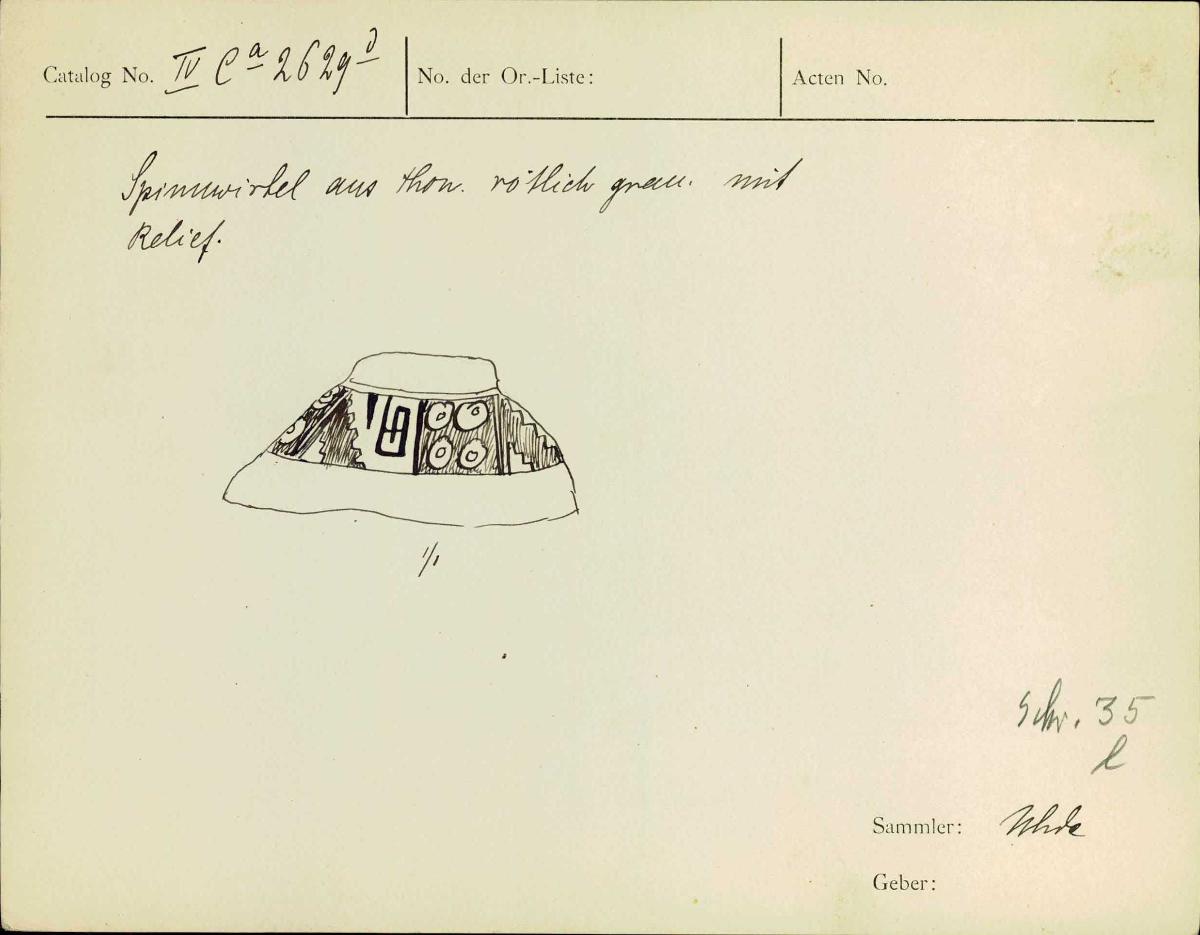 Catalog No. IV Ca 2629d
No. der Or.-Liste:
Acten No.
Spinnwirtel aus thon. rötlich grau. mit
Relief.
1/1
Schr. 35
l
Sammler: Uhde
Geber: